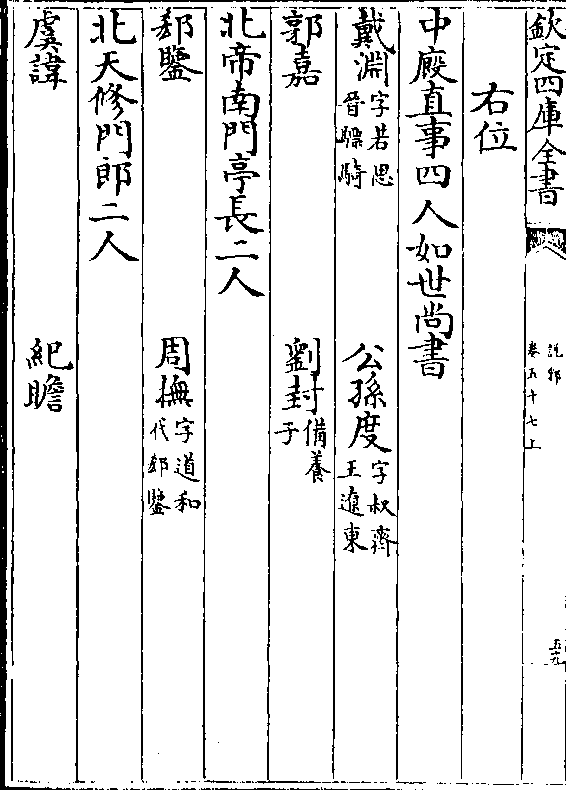 欽定四庫全書
說郛
卷五十七上
五十九
右位
中廄直事四人如世尚書
戴淵字若思晉驃騎 公孫度字叔濟王遼東
郭嘉 劉封備養子
北帝南門亭長二人
郄鑒 周撫字道和代郄鑒
北天修門郎二人
虞譚 紀瞻